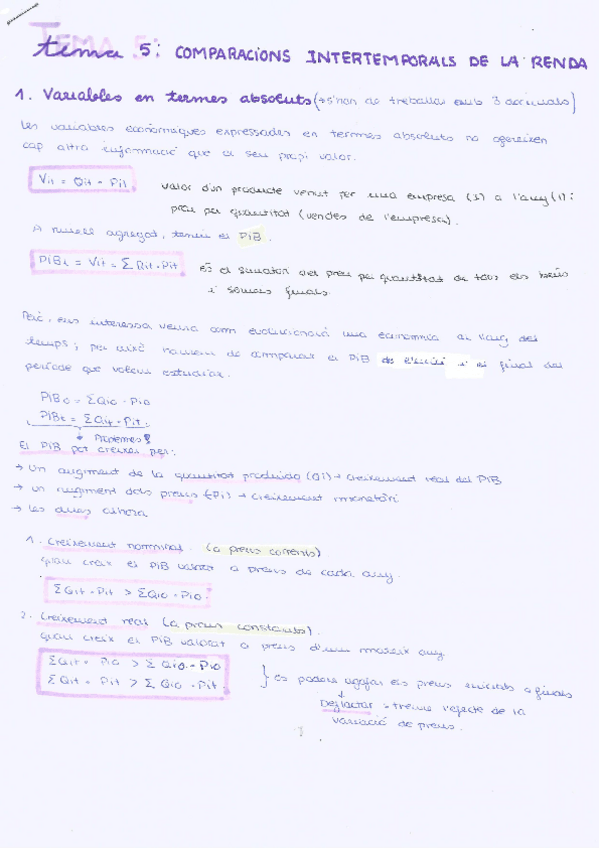 tema 5: COMPARACIONS INTERTEMPORALS DE LA RENDA
1. Variables en termes absoluts (→ s'han de treballar amb 3 decimals)
Les variables econòmiques expressades en termes absoluts no ofereixen
cap altra informació que el seu propi valor.
Vit = Qit · Pit
valor d'un producte venut per una empresa (i) a l'any (t):
preu per quantitat (vendes de l'empresa).
A nivell agregat, tenim el PiB.
PiBt = Vit = Σ Qit · Pit
És el sumatori del preu per quantitat de tots els béns
i serveis finals.
Però, ens interessa veure com evoluciona una economia al llarg del
temps; per això haurem de comparar el PiB de l'inici i el final del
període que volem estudiar.
PiB0 = ΣQi0 · Pi0
PiBt = ΣQit · Pit.
↓ Problemes!
El PiB pot créixer per:
→ Un augment de la quantitat produïda (Qi) → creixement real del PiB
→ un augment dels preus (Pi) → creixement monetari
→ les dues alhora
1. Creixement nominal (a preus corrents)
quan creix el PiB valorat a preus de cada any.
ΣQit · Pit > ΣQi0 · Pi0.
2. Creixement real (a preus constants).
quan creix el PiB valorat a preus d'un mateix any
ΣQit · Pi0 > Σ Qi0 · Pi0
ΣQit · Pit > Σ Qi0 · Pit.
} es poden agafar els preus inicials o finals
↓
Deflactar: treure l'efecte de la
variació de preus.